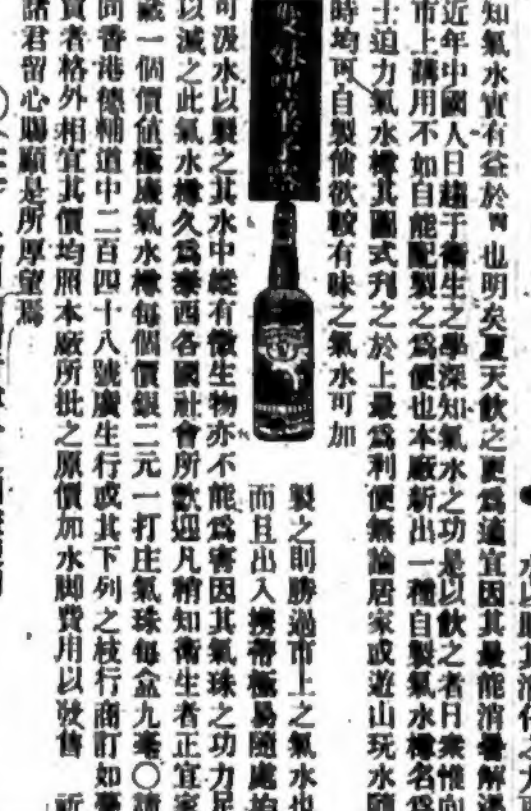 知氣水實有益於胃也明矣夏天飲之更為適宜因其最能消暑解
近年中國人日趨于衛生之學深知氣水之功是以飲之者日衆惟
市上講用不如自能配製之爲便也本廠新出一種自製氣水樽名
士迫力氣水樽其圖式刋之於上最爲利便無論居家或遊山玩水隨
時均可自製倘欲較有味之氣水可加
雙妹嘜菓子露
製之則勝過市上之氣水也
而且出入携帶極易隨處均
可汲水以製之其水中縱有微生物亦不能爲害因其氣珠之功力足
以滅之此氣水樽久爲泰西各國社會所歡迎凡稍知衛生者正宜家
藏一個價值極廉氣水樽每個價銀二元一打庄氣珠每盒九毫〇請
向香港德輔道中二百四十八號廣生行或其下列之枝行商訂如
買者格外相宜其價均照本廠所批之原價加水脚費用以發售 祈
諸君留心賜顧是所厚望焉